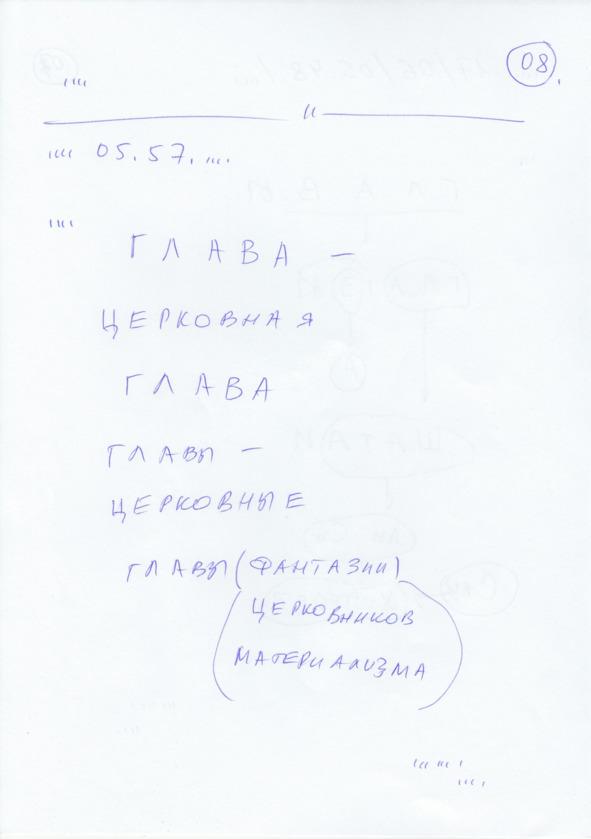 08.
""
"" 05.57. ....
""
ГЛАВА –
ЦЕРКОВНАЯ
ГЛАВА
ГЛАВЫ –
ЦЕРКОВНЫЕ
ГЛАВЫ (ФАНТАЗИИ)
(ЦЕРКОВНИКОВ
МАТЕРИАЛИЗМА)